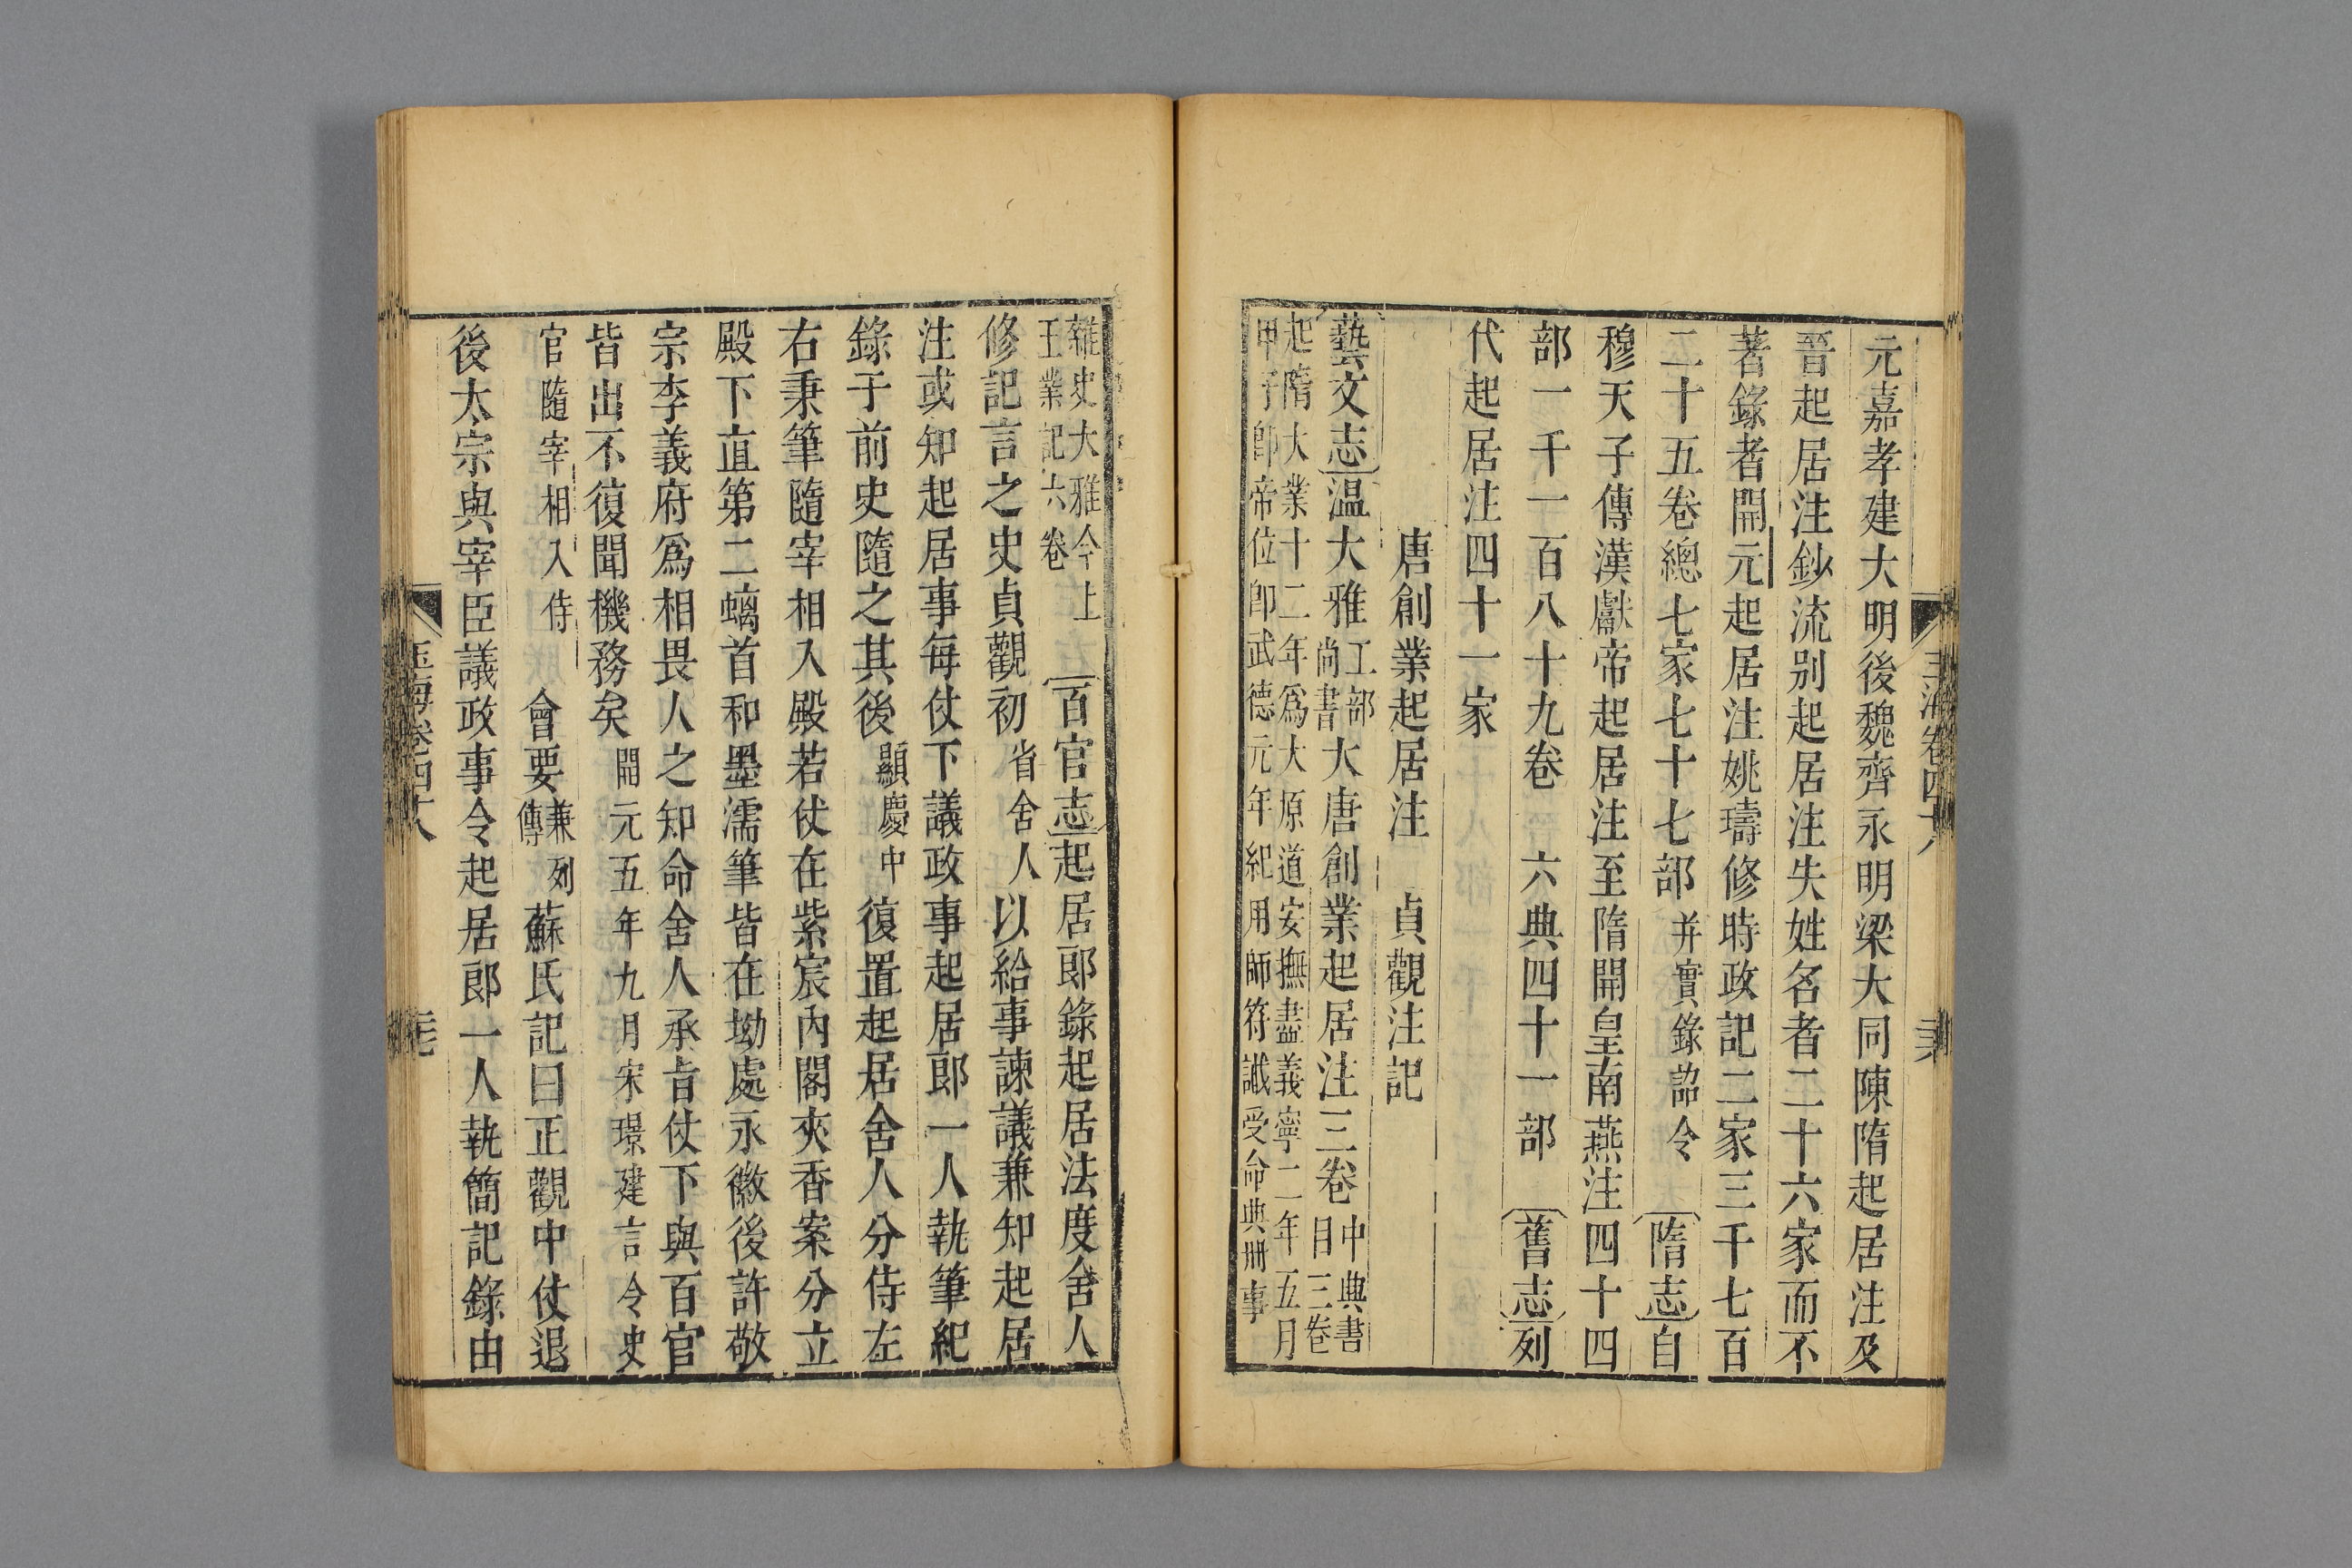 元嘉孝建大明後魏齊永明梁大同陳隋起居注及
晉起居注鈔流别起居注失姓名者二十六家而不
著錄者開元起居注姚璹修時政記二家三千七百
二十五卷總七家七十七部并實錄詔令隋志自
穆天子傳漢獻帝起居注至隋開皇南燕注四十四
部一千一百八十九卷 六典四十一部 舊志列
代起居注四十一家
唐創業起居注 貞觀注記
藝文志温大雅
工部
尚書
大唐創業起居注三卷
中興書
目三卷
起隋大業十二年爲大原道安撫盡義寧二年五月
甲子卽帝位卽武德元年紀用師符讖受命典册事
雜史大雅今上
王業記六卷
百官志起居郎錄起居法度舍人
修記言之史貞觀初省舍人以給事諫議兼知起居
注或知起居事每仗下議政事起居郎一人執筆紀
錄于前史隨之其後顯慶中復置起居舍人分侍左
右秉筆隨宰相入殿若仗在紫宸內閣夾香案分立
殿下直第二螭首和墨濡筆皆在坳處永徽後許敬
宗李義府爲相畏人之知命舍人承旨仗下與百官
皆出不復聞機務矣開元五年九月宋璟建言令史
官隨宰相入侍 會要
兼列
傳
蘇氏記曰正觀中仗退
後太宗與宰臣議政事令起居郎一人執簡記錄由
玉海卷四十八